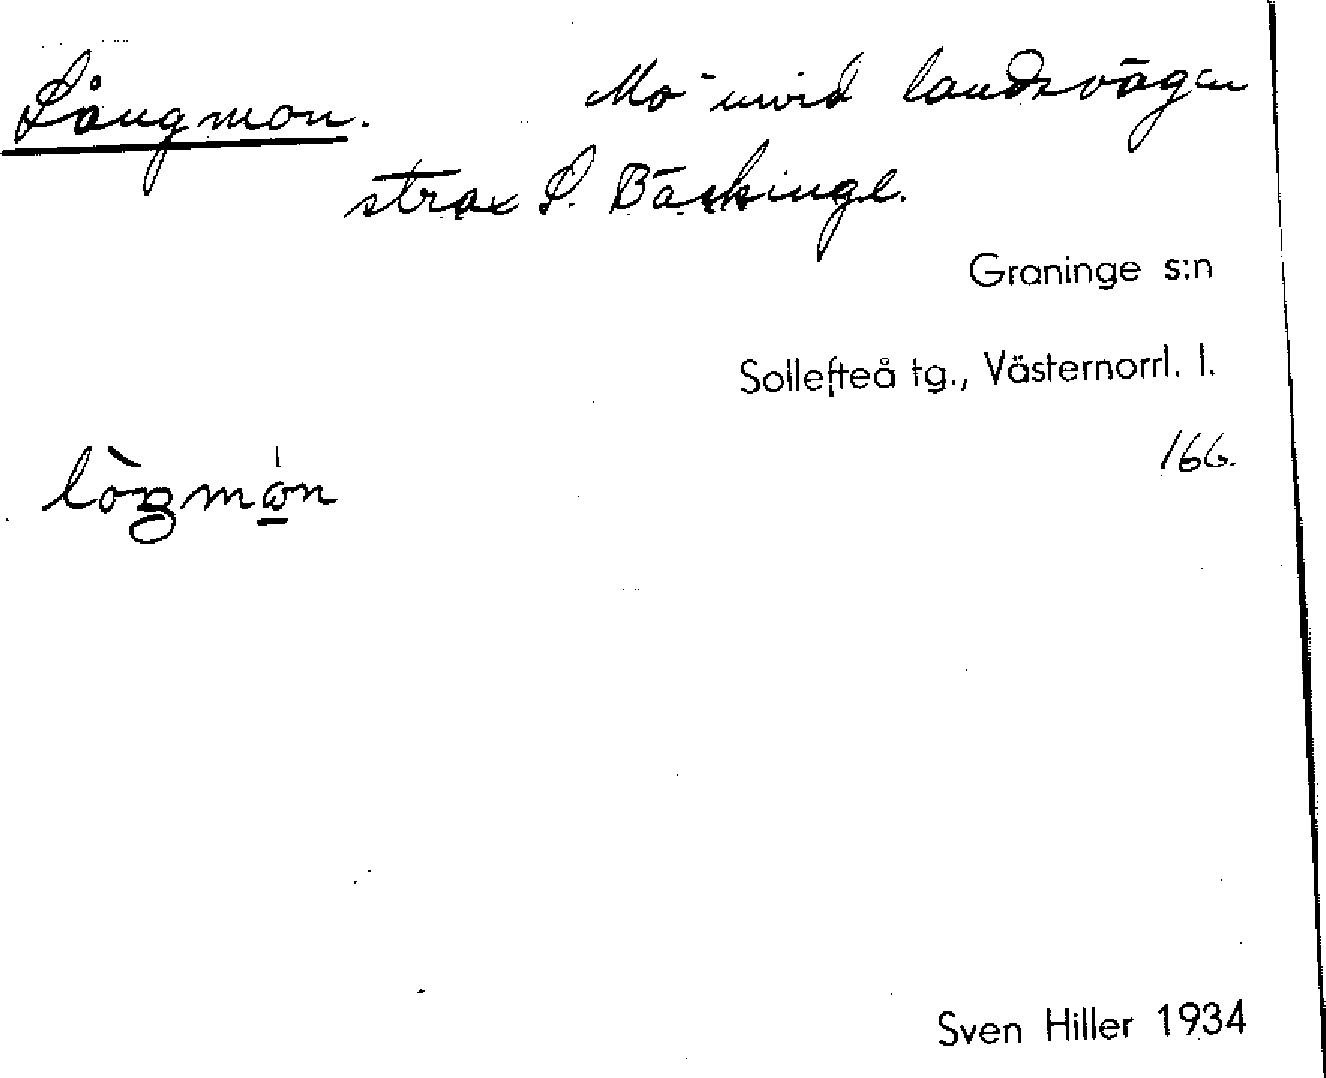 Långmon. Mo invid landsvägen
strax S. Bäckinge.
Graninge s:n
Sollefteå tg., Västernorrl. l.
166.
Sven Hiller 1934